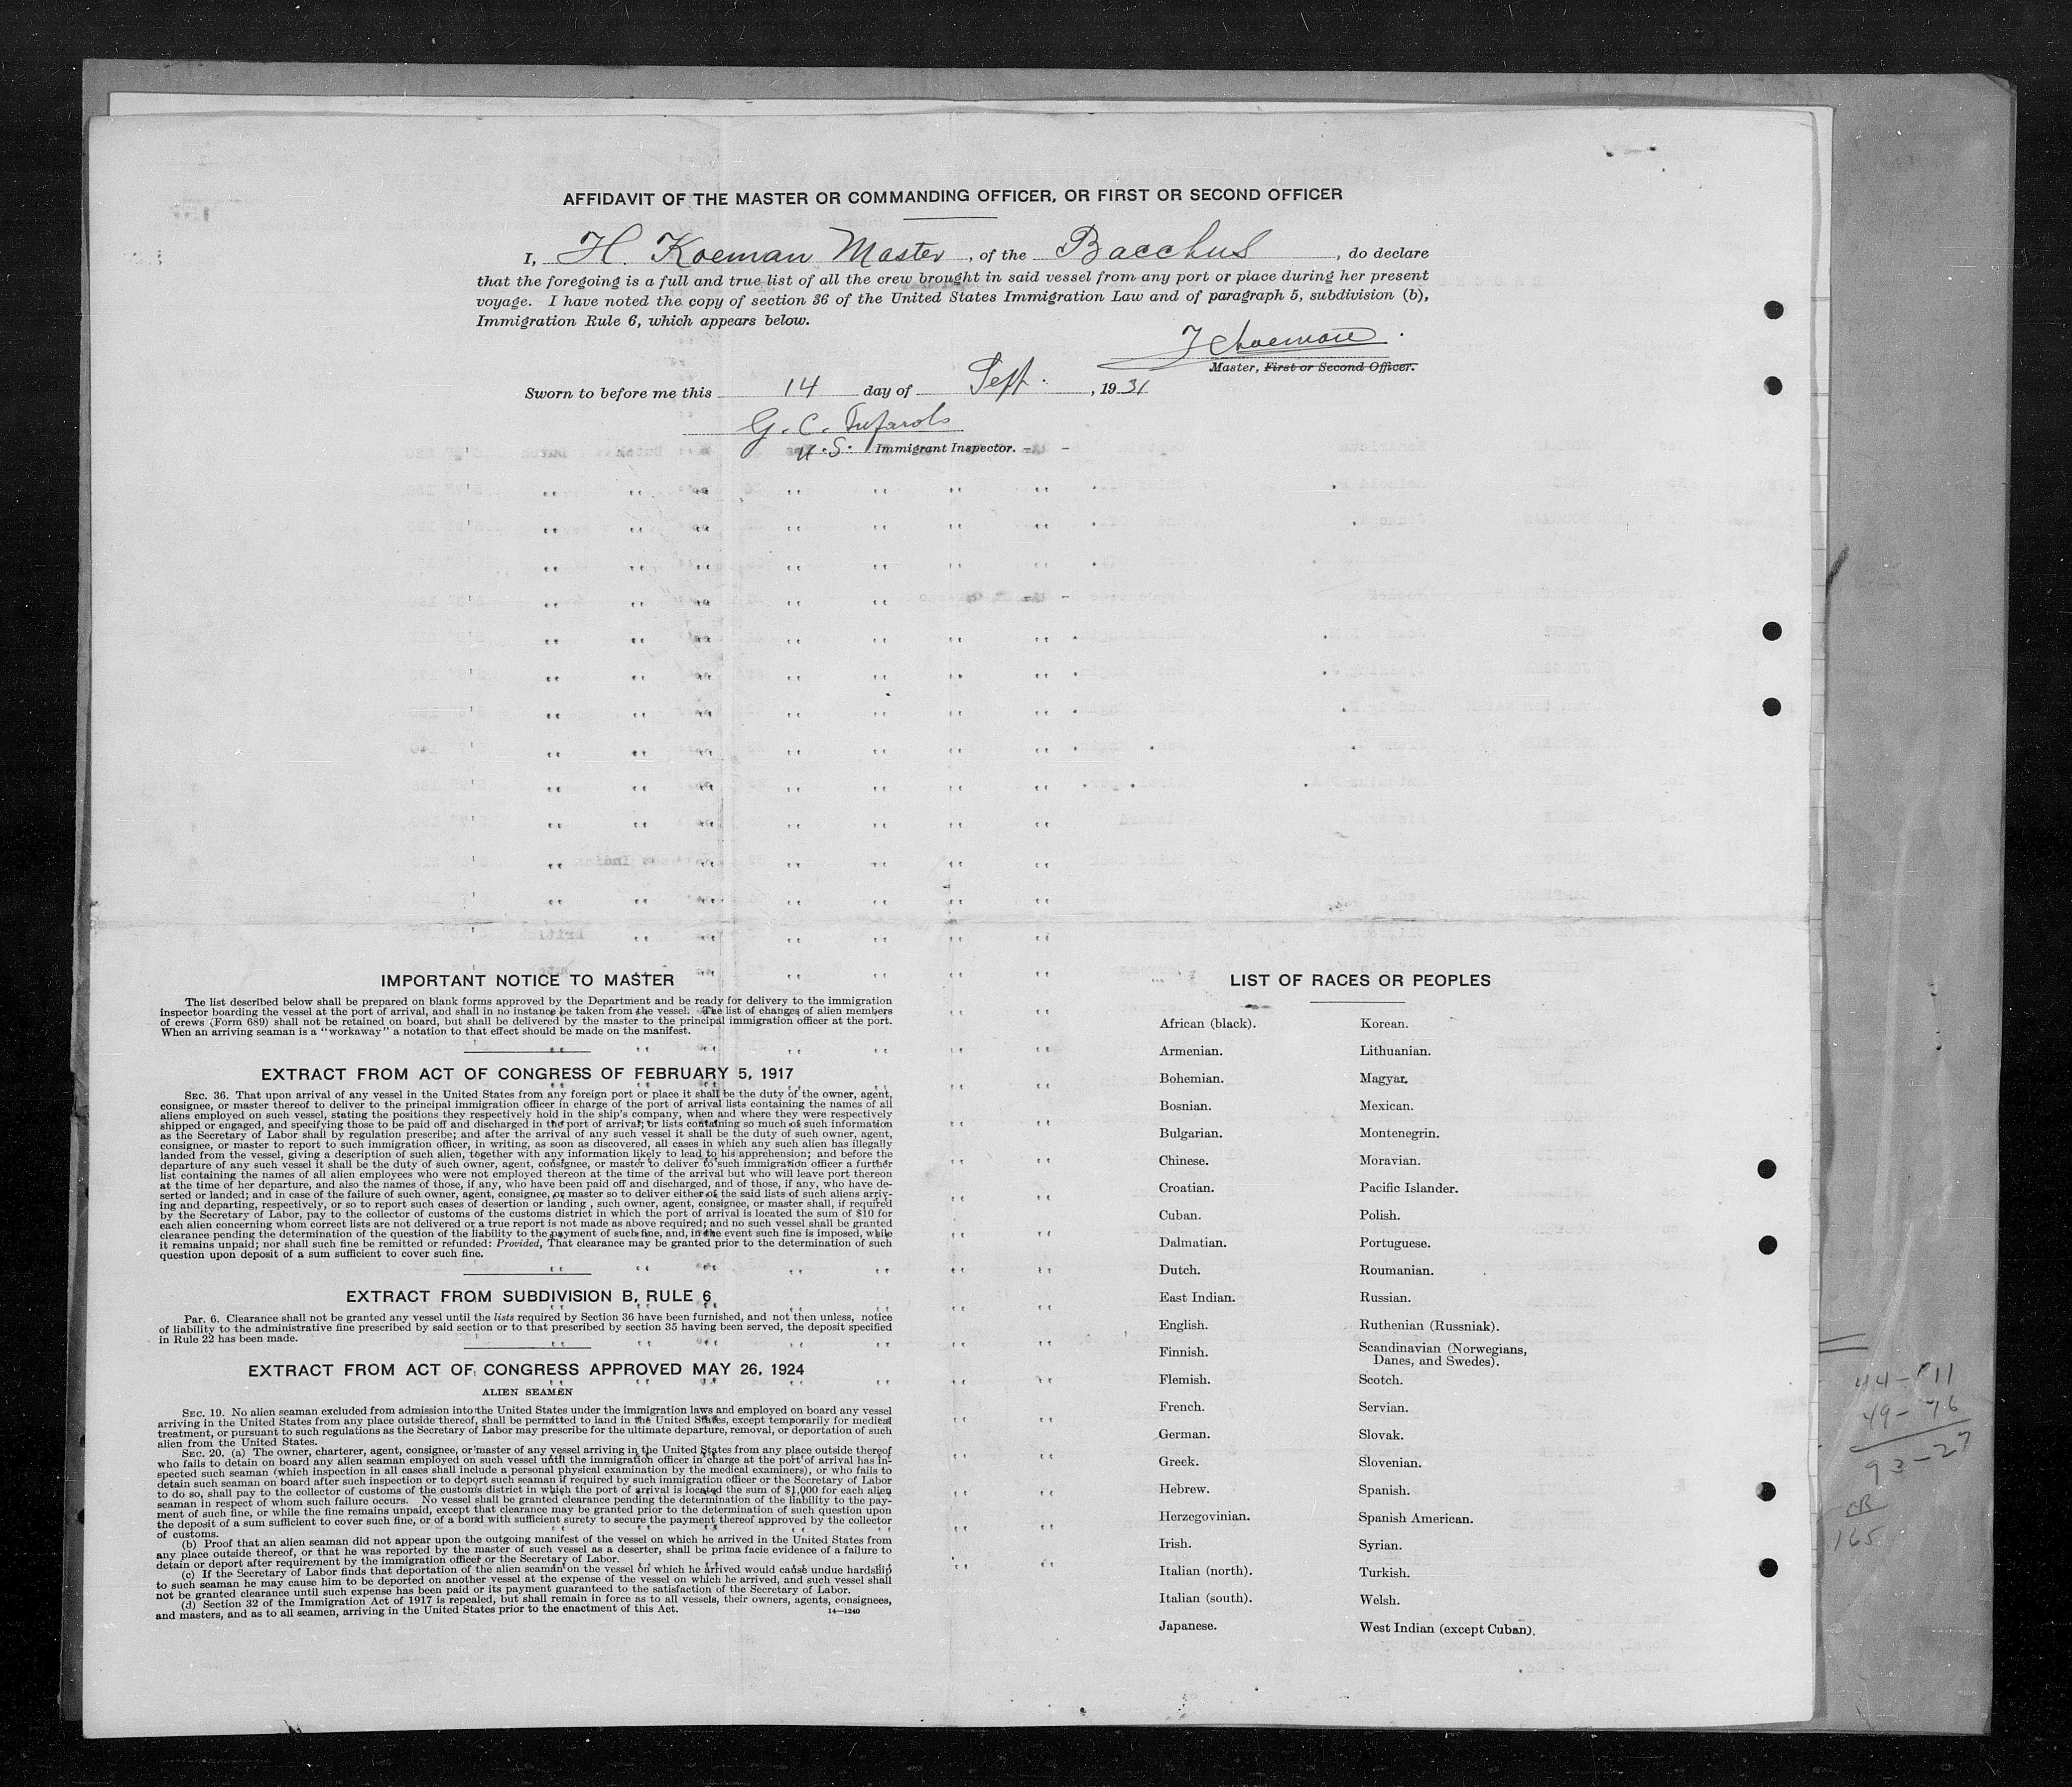 AFFIDAVIT OF THE MASTER OR COMMANDING OFFICER, OR FIRST OR SECOND OFFICER
I, H. Koeman Master, of the Bacchus, do declare
that the foregoing is a full and true list of all the crew brought in said vessel from any port or place during her present
voyage. I have noted the copy of section 36 of the United States Immigration Law and of paragraph 5, subdivision (b),
Immigration Rule 6, which appears below.
Master, First or Second Officer.
Sworn to before me this 14 day of Sept. , 1931
G. C.
U.S. Immigrant Inspector.
IMPORTANT NOTICE TO MASTER
The list described below shall be prepared on blank forms approved by the Department and be ready for delivery to the immigration
inspector boarding the vessel at the port of arrival, and shall in no instance be taken from the vessel. The list of changes of alien members
of crews (Form 689) shall not be retained on board, but shall be delivered by the master to the principal immigration officer at the port.
When an arriving seaman is a "workaway" a notation to that effect should be made on the manifest.
EXTRACT FROM ACT OF CONGRESS OF FEBRUARY 5, 1917
SEC. 36. That upon arrival of any vessel in the United States from any foreign port or place it shall be the duty of the owner, agent,
consignee, or master thereof to deliver to the principal immigration officer in charge of the port of arrival lists containing the names of all
aliens employed on such vessel, stating the positions they respectively hold in the ship's company, when and where they were respectively
shipped or engaged, and specifying those to be paid off and discharged in the port of arrival; or lists containing so much of such information
as the Secretary of Labor shall by regulation prescribe; and after the arrival of any such vessel it shall be the duty of such owner, agent,
consignee, or master to report to such immigration officer, in writing, as soon as discovered, all cases in which any such alien has illegally
landed from the vessel, giving a description of such alien, together with any information likely to lead to his apprehension; and before the
departure of any such vessel it shall be the duty of such owner, agent, consignee, or master to deliver to such immigration officer a further
list containing the names of all alien employees who were not employed thereon at the time of the arrival but who will leave port thereon
at the time of her departure, and also the names of those, if any, who have been paid off and discharged, and of those, if any, who have de-
serted or landed; and in case of the failure of such owner, agent, consignee, or master so to deliver either of the said lists of such aliens arriv-
ing and departing, respectively, or so to report such cases of desertion or landing , such owner, agent, consignee, or master shall, if required
by the Secretary of Labor, pay to the collector of customs of the customs district in which the port of arrival is located the sum of $10 for
each alien concerning whom correct lists are not delivered or a true report is not made as above required; and no such vessel shall be granted
clearance pending the determination of the question of the liability to the payment of such fine, and, in the event such fine is imposed, while
it remains unpaid; nor shall such fine be remitted or refunded: Provided, That clearance may be granted prior to the determination of such
question upon deposit of a sum sufficient to cover such fine.
EXTRACT FROM SUBDIVISION B, RULE 6
Par. 6. Clearance shall not be granted any vessel until the lists required by Section 36 have been furnished, and not then unless, notice
of liability to the administrative fine prescribed by said section or to that prescribed by section 35 having been served, the deposit specified
in Rule 22 has been made.
EXTRACT FROM ACT OF CONGRESS APPROVED MAY 26, 1924
ALIEN SEAMEN
SEC. 19. No alien seaman excluded from admission into the United States under the immigration laws and employed on board any vessel
arriving in the United States from any place outside thereof, shall be permitted to land in the United States, except temporarily for medical
treatment, or pursuant to such regulations as the Secretary of Labor may prescribe for the ultimate departure, removal, or deportation of such
alien from the United States.
SEC. 20. (a) The owner, charterer, agent, consignee, or master of any vessel arriving in the United States from any place outside thereof
who fails to detain on board any alien seaman employed on such vessel until the immigration officer in charge at the port of arrival has in-
spected such seaman (which inspection in all cases shall include a personal physical examination by the medical examiners), or who fails to
detain such seaman on board after such inspection or to deport such seaman if required by such immigration officer or the Secretary of Labor
to do so, shall pay to the collector of customs of the customs district in which the port of arrival is located the sum of $1,000 for each alien
seaman in respect of whom such failure occurs. No vessel shall be granted clearance pending the determination of the liability to the pay-
ment of such fine, or while the fine remains unpaid, except that clearance may be granted prior to the determination of such question upon
the deposit of a sum sufficient to cover such fine, or of a bond with sufficient surety to secure the payment thereof approved by the collector
of customs.
(b) Proof that an alien seaman did not appear upon the outgoing manifest of the vessel on which he arrived in the United States from
any place outside thereof, or that he was reported by the master of such vessel as a deserter, shall be prima facie evidence of a failure to
detain or deport after requirement by the immigration officer or the Secretary of Labor.
(c) If the Secretary of Labor finds that deportation of the alien seaman on the vessel on which he arrived would cause undue hardship
to such seaman he may cause him to be deported on another vessel at the expense of the vessel on which he arrived, and such vessel shall
not be granted clearance until such expense has been paid or its payment guaranteed to the satisfaction of the Secretary of Labor.
(d) Section 32 of the Immigration Act of 1917 is repealed, but shall remain in force as to all vessels, their owners, agents, consignees,
and masters, and as to all seamen, arriving in the United States prior to the enactment of this Act.
14—1240
LIST OF RACES OR PEOPLES
African (black).
Armenian.
Bohemian.
Bosnian.
Bulgarian.
Chinese.
Croatian.
Cuban.
Dalmatian.
Dutch.
East Indian.
English.
Finnish.
Flemish.
French.
German.
Greek.
Hebrew.
Herzegovinian.
Irish.
Italian (north).
Italian (south).
Japanese.
Korean.
Lithuanian.
Magyar.
Mexican.
Montenegrin.
Moravian.
Pacific Islander.
Polish.
Portuguese.
Roumanian.
Russian.
Ruthenian (Russniak).
Scandinavian (Norwegians,
Danes, and Swedes).
Scotch.
Servian.
Slovak.
Slovenian.
Spanish.
Spanish American.
Syrian.
Turkish.
Welsh.
West Indian (except Cuban).
44-11
49-76
93-27
165